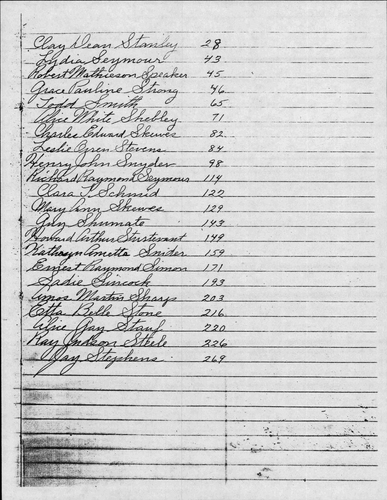 Clay Dean Stanley 28
Lydia Seymour 43
Robert Mathieson Speaker 45
Grace Pauline Strong 46
Todd Smith 65
Alice White Shebley 71
Charles Edward Skewes 82
Leslie Oren Stevens 84
Henry John Snyder 98
Richard Raymond Seymour 114
Clara T. Schmid 122
Mary Ann Skewes 129
Ady Shumate 143
Howard Arthur Sturtevant 149
Kathryn Ametta Snider 159
Ernest Raymond Simon 171
Sadie Sincock 193
Amos Martin Sharp 203
Etta Belle Stone 216
Alice Gay Stauf 220
Ray Judson Steele 226
Jay Stephens 269